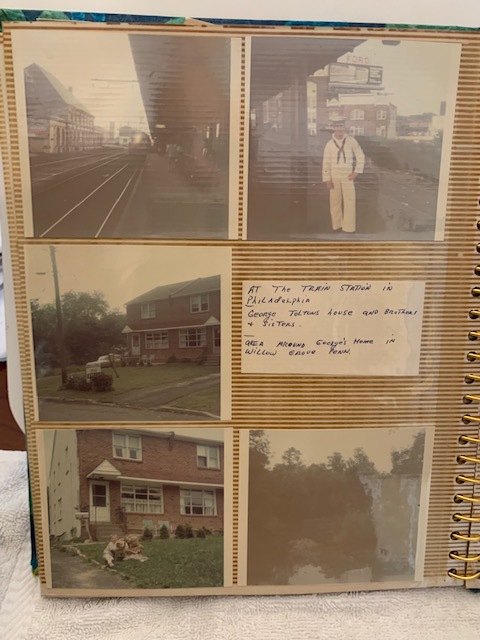 FORD
AT THE TRAIN STATION IN
PHILADELPHIA
GEORGE TOLTONS HOUSE AND BROTHERS
& SISTERS.
AREA AROUND GEORGE'S HOME IN
WILLOW GROVE PENN.